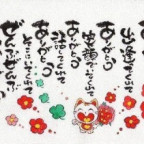 出逢ってくれて
ありがとう
笑顔でいてくれて
ありがとう
話してくれて
ありがとう
そこにいてくれて
ぜんぶぜんぶ